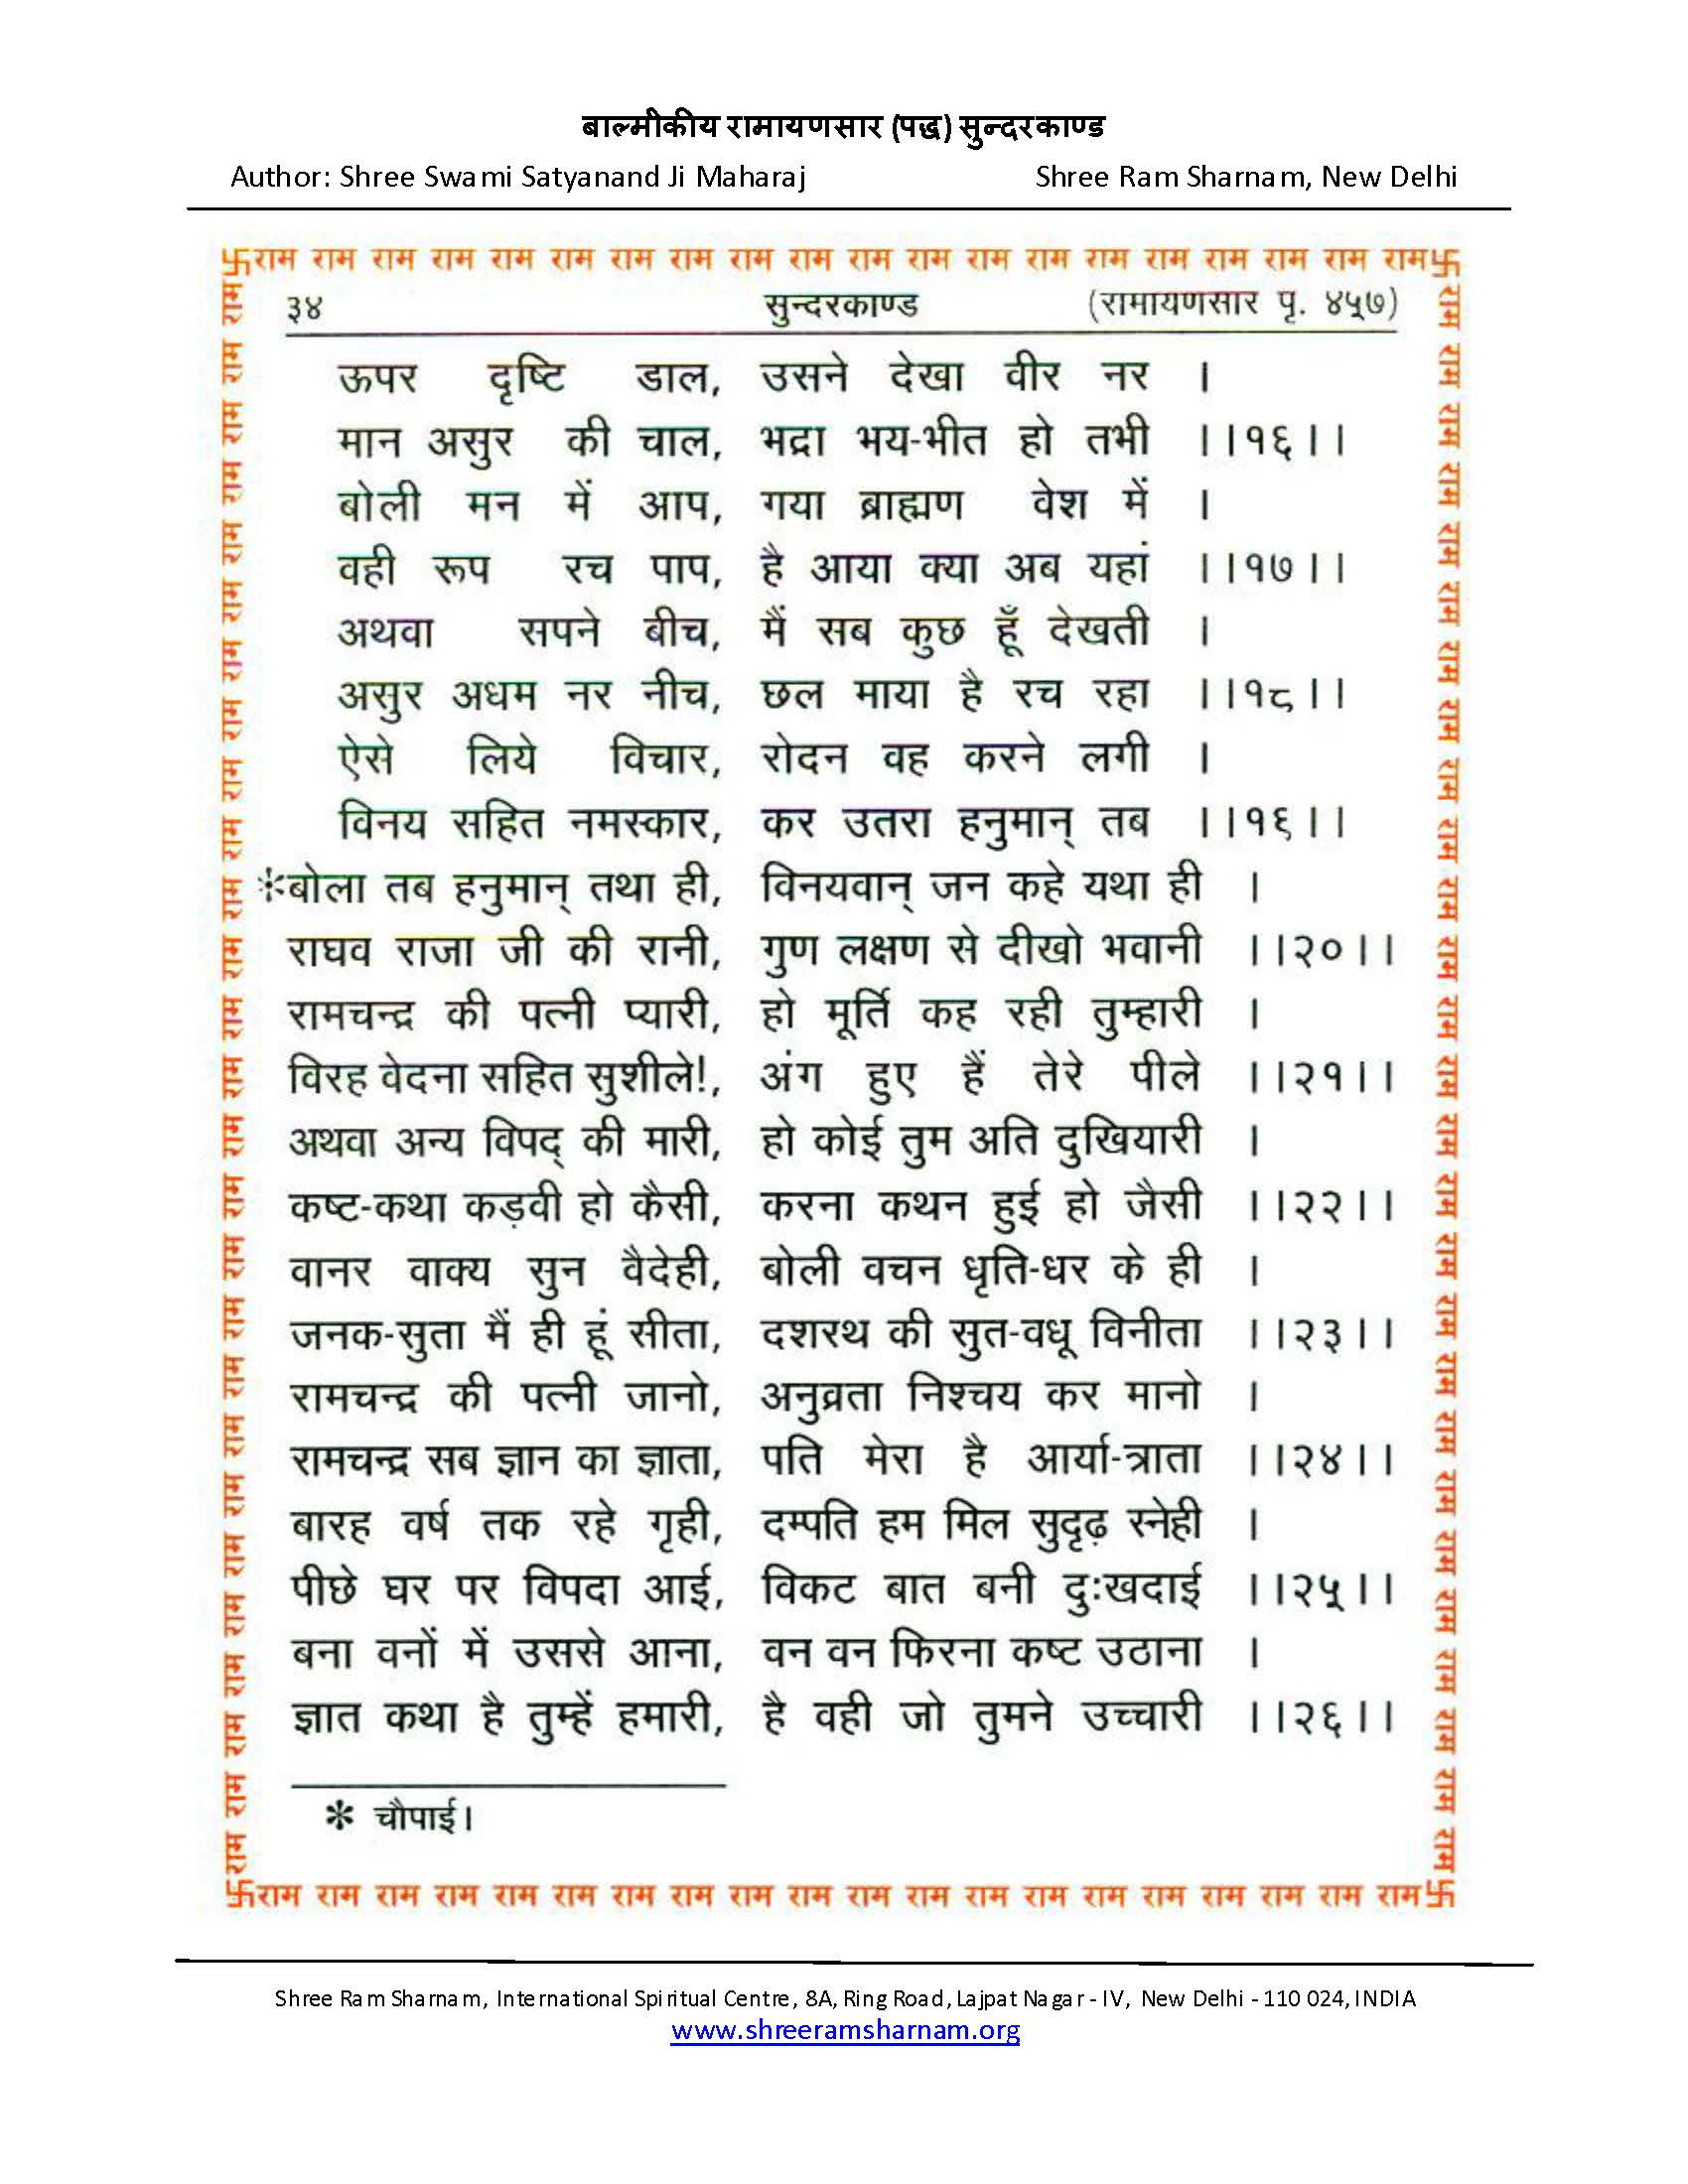 बाल्मीकीय रामायणसार (पद्ध) सुन्दरकाण्ड
Author: Shree Swami Satyanand Ji Maharaj Shree Ram Sharnam, New Delhi
卐राम राम राम राम राम राम राम राम राम राम राम राम राम राम राम राम राम राम राम राम卐
३४ सुन्दरकाण्ड (रामायणसार पृ. ४५७)
ऊपर दृष्टि डाल, उसने देखा वीर नर ।
मान असुर की चाल, भद्रा भय-भीत हो तभी ।।१६।।
बोली मन में आप, गया ब्राह्मण वेश में ।
वही रूप रच पाप, है आया क्या अब यहां ।।१७।।
अथवा सपने बीच, मैं सब कुछ हूँ देखती ।
असुर अधम नर नीच, छल माया है रच रहा ।।१८।।
ऐसे लिये विचार, रोदन वह करने लगी ।
विनय सहित नमस्कार, कर उतरा हनुमान् तब ।।१९।।
*बोला तब हनुमान् तथा ही, विनयवान् जन कहे यथा ही ।
राघव राजा जी की रानी, गुण लक्षण से दीखो भवानी ।।२०।।
रामचन्द्र की पत्नी प्यारी, हो मूर्ति कह रही तुम्हारी ।
विरह वेदना सहित सुशीले!, अंग हुए हैं तेरे पीले ।।२१।।
अथवा अन्य विपद् की मारी, हो कोई तुम अति दुखियारी ।
कष्ट-कथा कड़वी हो कैसी, करना कथन हुई हो जैसी ।।२२।।
वानर वाक्य सुन वैदेही, बोली वचन धृति-धर के ही ।
जनक-सुता मैं ही हूं सीता, दशरथ की सुत-वधू विनीता ।।२३।।
रामचन्द्र की पत्नी जानो, अनुव्रता निश्चय कर मानो ।
रामचन्द्र सब ज्ञान का ज्ञाता, पति मेरा है आर्या-त्राता ।।२४।।
बारह वर्ष तक रहे गृही, दम्पति हम मिल सुदृढ़ स्नेही ।
पीछे घर पर विपदा आई, विकट बात बनी दुःखदाई ।।२५।।
बना वनों में उससे आना, वन वन फिरना कष्ट उठाना ।
ज्ञात कथा है तुम्हें हमारी, है वही जो तुमने उच्चारी ।।२६।।
* चौपाई।
卐राम राम राम राम राम राम राम राम राम राम राम राम राम राम राम राम राम राम राम राम卐
Shree Ram Sharnam, International Spiritual Centre, 8A, Ring Road, Lajpat Nagar - IV, New Delhi - 110 024, INDIA
www.shreeramsharnam.org